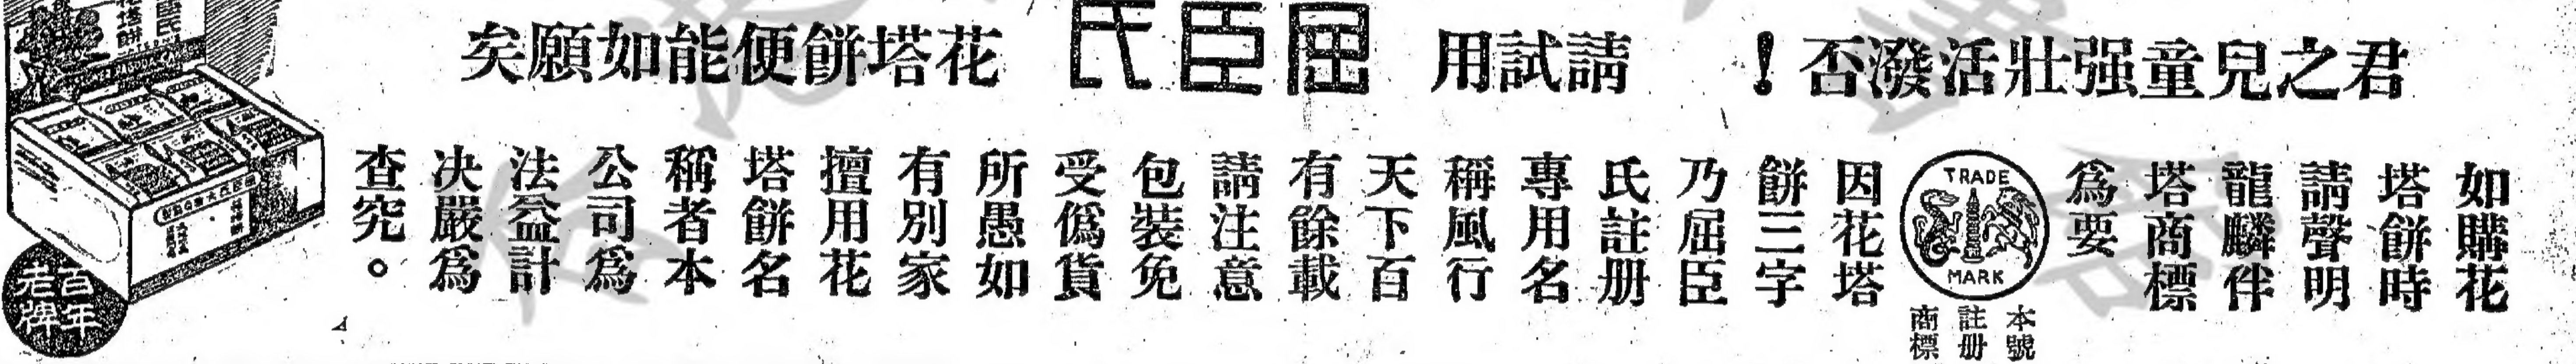 君之兒童强壯活潑否！
請試用
屈臣氏
花塔餅便能如願矣
如購花
塔餅時
請聲明
龍麟伴
塔商標
爲要
TRADE
MARK
本號
註册
商標
因花塔
餅三字
乃屈臣
氏註册
專用名
稱風行
天下百
有餘載
請注意
包裝免
受僞貨
所愚如
有別家
擅用花
塔餅名
稱者本
公司爲
法益計
决嚴爲
查究。
百年
老牌